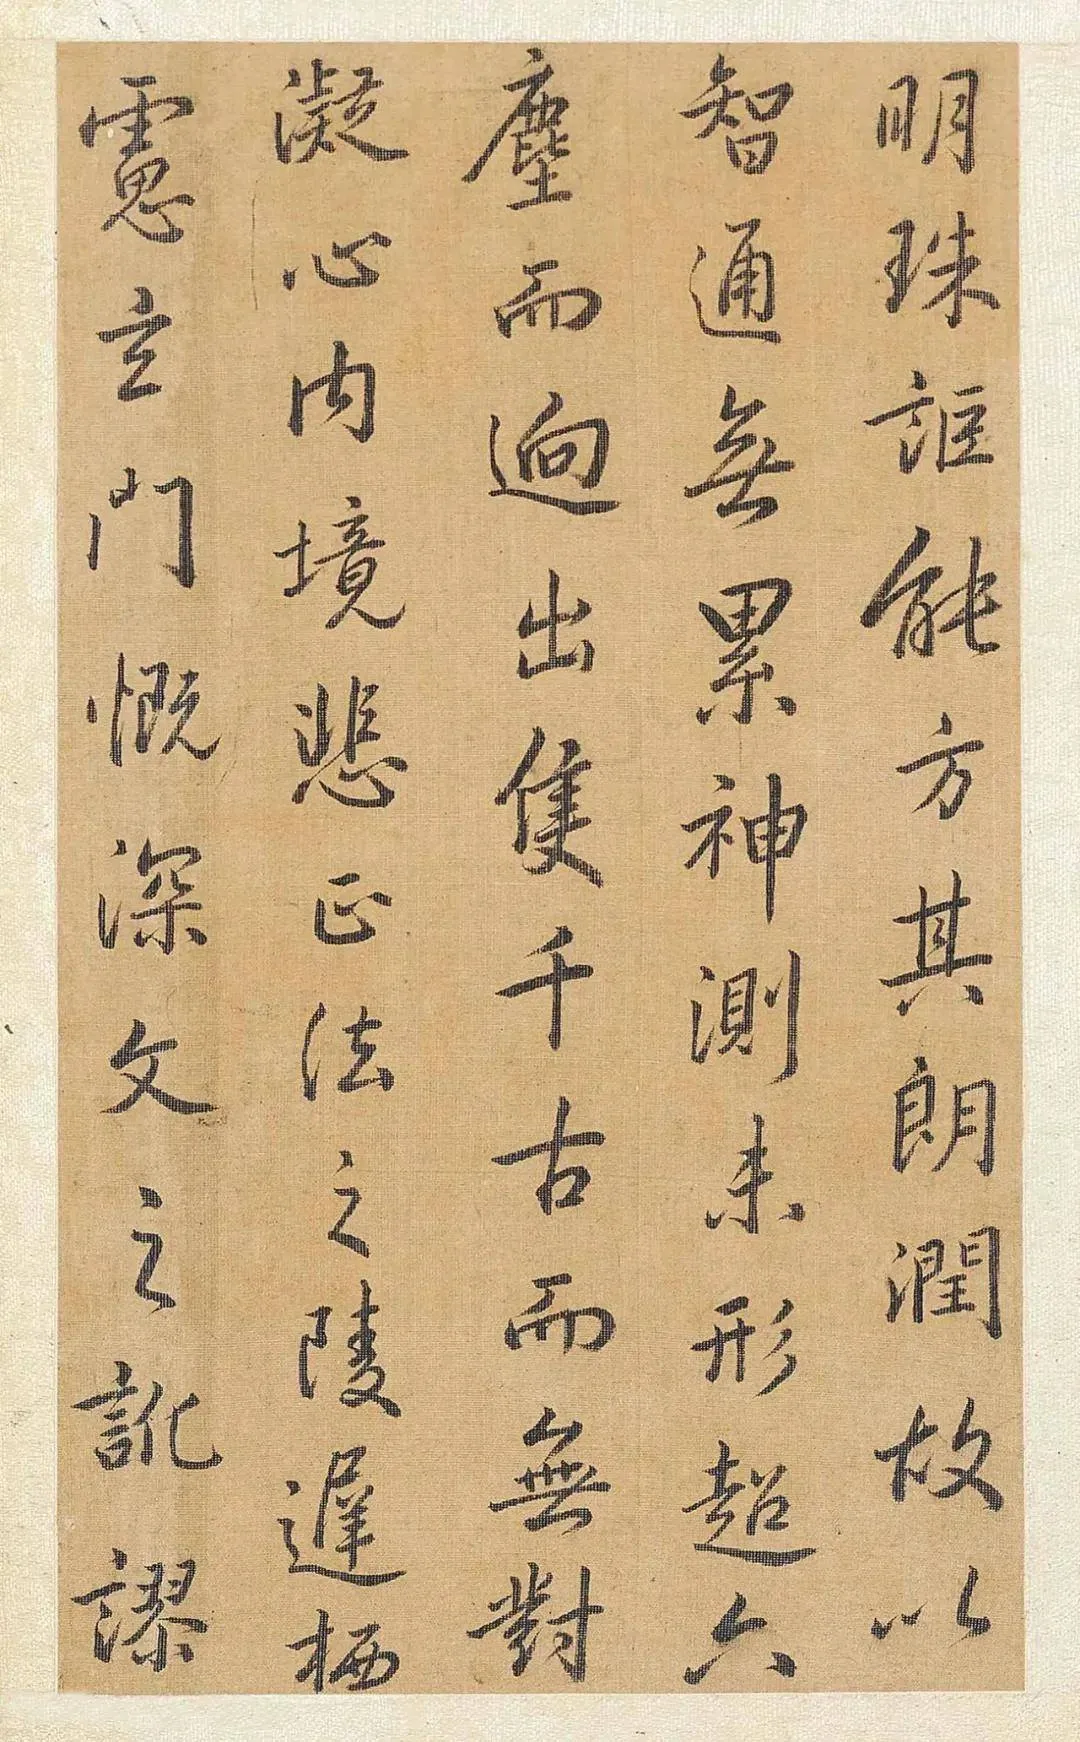 明珠詎能方其朗潤故以
智通無累神測未形超六
塵而迥出隻千古而無對
凝心內境悲正法之陵遲栖
慮玄門慨深文之訛謬